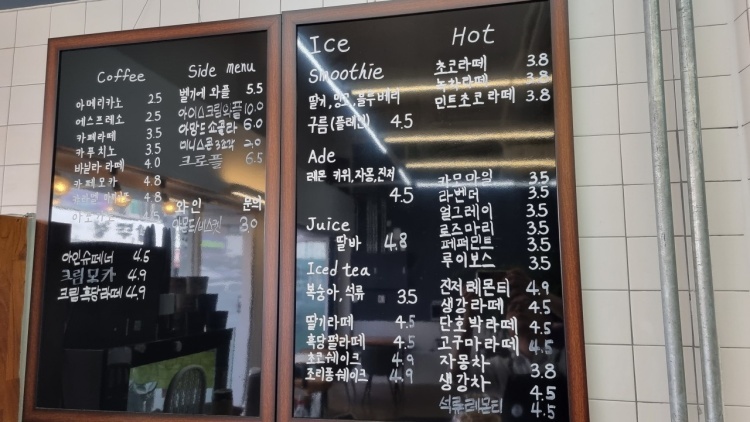 Coffee
아메리카노 2.5
에스프레소 2.5
카페라떼 3.5
카푸치노 3.5
바닐라 라떼 4.0
카페모카 4.8
4.8
4.5
아인슈페너 4.5
크림모카 4.9
크림흑당라떼 4.9
Side menu
벨기에 와플 5.5
아이스크림와플 10.0
아망드쇼콜라 6.0
미니스콘 3조각 2.0
크로플 6.5
와인 문의
아몬드/비스킷 3.0
Ice
Smoothie
딸기, 망고, 블루베리
구름(플레인) 4.5
Ade
레몬 키위,자몽,진저
4.5
Juice
딸바 4.8
Iced tea
복숭아, 석류 3.5
딸기라떼 4.5
흑당펄라떼 4.5
초코쉐이크 4.9
조리퐁쉐이크 4.9
Hot
초코라떼 3.8
녹차라떼 3.8
민트초코라떼 3.8
카모마일 3.5
라벤더 3.5
얼그레이 3.5
로즈마리 3.5
페퍼민트 3.5
루이보스 3.5
진저레몬티 4.9
생강라떼 4.5
단호박라떼 4.5
고구마라떼 4.5
자몽차 3.8
생강차 4.5
석류레몬티 4.5